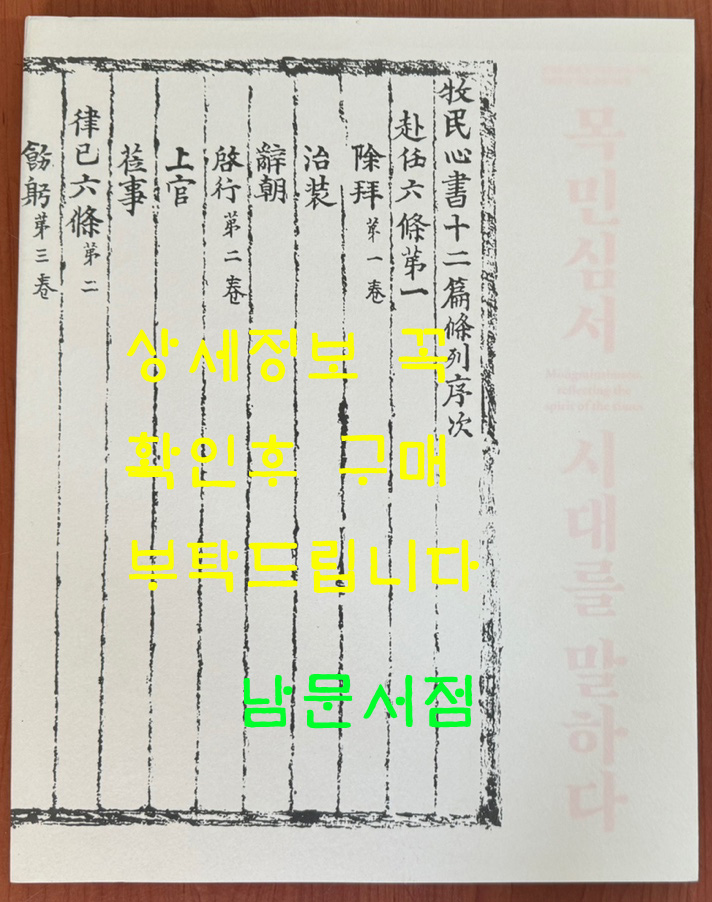 牧民心書十二篇條列序次
赴任六條第一
除拜 第一卷
治裝
辭朝
啓行 第二卷
上官
莅事
律己六條 第二
飭躬 第三卷
목민심서
시대를 말하다
reflecting the
spirit of the times
상세정보 꼭
확인후 구매
부탁드립니다
남문서점